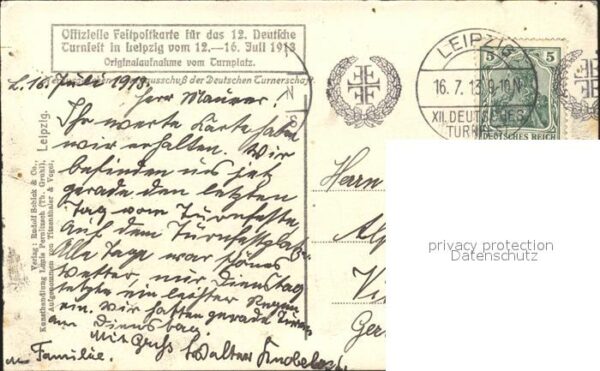 Offizielle Festpostkarte für das 12. Deutsche
Turnfest in Leipzig vom 12.—16. Juli 1913
Originalaufnahme vom Turnplatz.
ausschuß der Deutschen Turnerschaft
L. 16. Juli 1913.
Herr Maurer!
Ihre werte Karte habe
wir erhalten. Wir
befinden uns jetz
gerade den letzten
Tag vom Turnfeste
auf dem Turnfestplatz.
Alle Tage war schönes
Wetter, nur Dienstag
letzte ein leichter Regen
ein. Wir hatten gerade
am Dienstag.
Mit Gruß Walter
Familie.
Verlag: Rudolf Bobick & Co.,
Kunsthandlung Louis Pernitzsch (Th. Gruhl), Leipzig.
Aufgenommen von Titzenthaler & Vogel,
LEIPZIG
16. 7. 13. 9-10 N.
XII. DEUTSCHES
TURNFEST
5 5
DEUTSCHES REICH
Herrn
privacy protection
Datenschutz